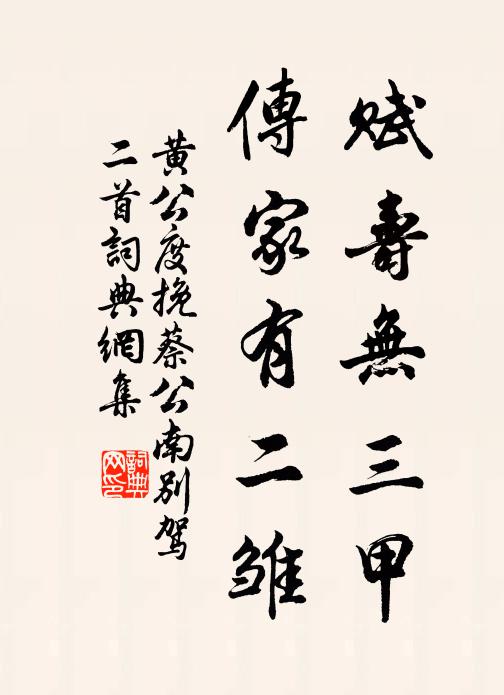 賦壽無三甲
傳家有二雛
黄公度挽蔡公南別駕
二首詞典網集
詞典網印